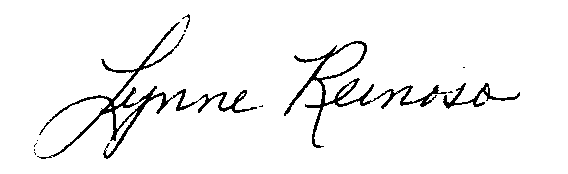 Lynne Reinoso